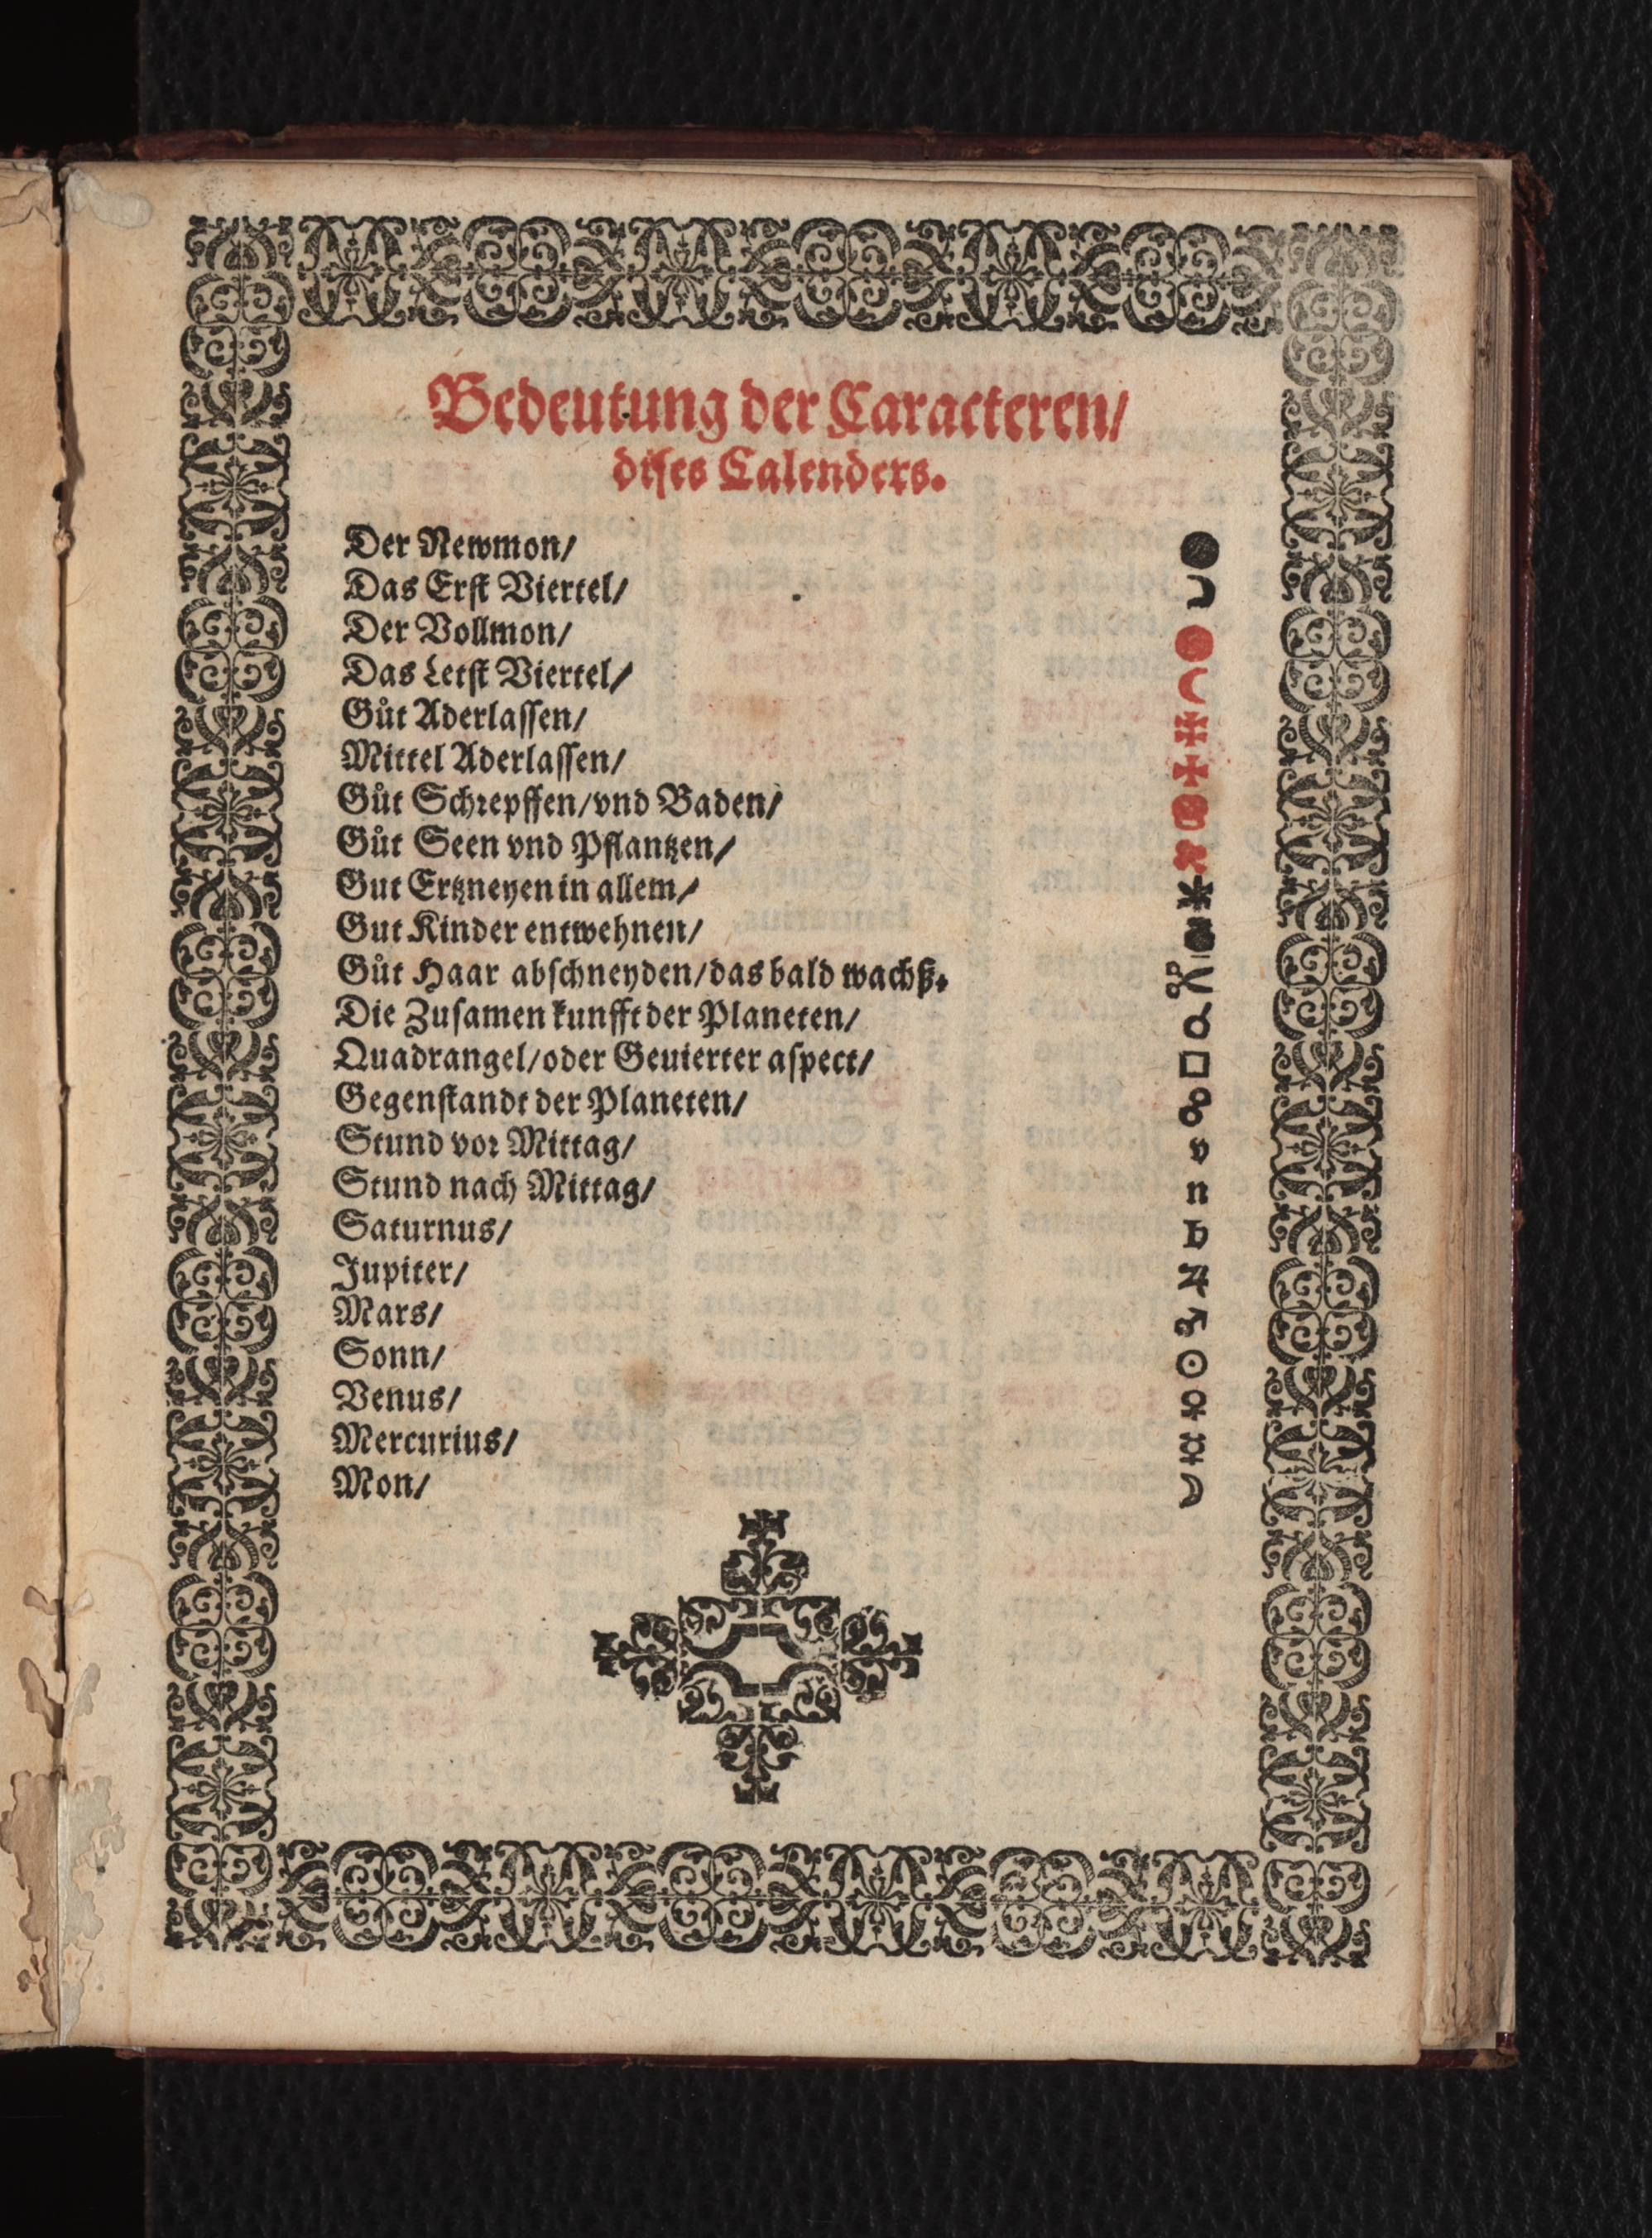 Bedeutung der Caracteren/
dises Calenders.
Der Newmon/ ●
Das Erst Viertel/ ☽
Der Vollmon/ ●
Das Letst Viertel/ ☾
Gůt Aderlassen/
Mittel Aderlassen/ ✠
Gůt Schrepffen/vnd Baden/
Gůt Seen vnd Pflantzen/
Gut Ertzneyen in allem/
Gut Kinder entwehnen/
Gůt Haar abschneyden/das bald wachß.
Die Zusamen kunfft der Planeten/ ☌
Quadrangel/oder Geuierter aspect/ □
Gegenstandt der Planeten/ ☍
Stund vor Mittag/ v
Stund nach Mittag/ n
Saturnus/ ♄
Jupiter/ ♃
Mars/ ♂
Sonn/ ☉
Venus/ ♀
Mercurius/ ☿
Mon/ ☽